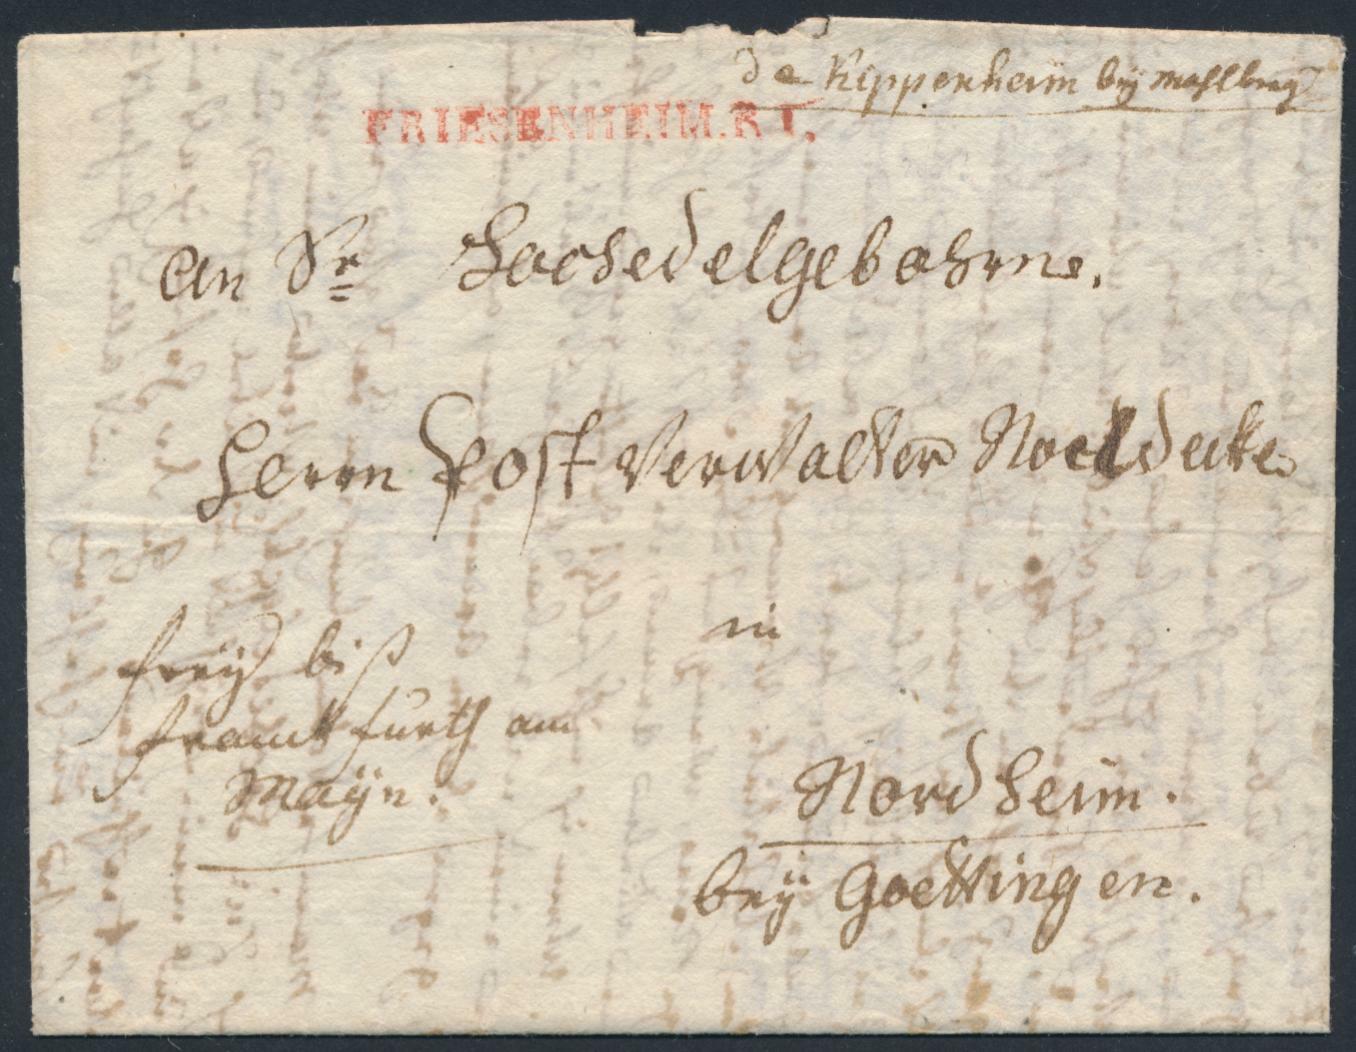 de Kippenheim bey Mahlberg
FRIESENHEIM.R I.
An Sr Hochedelgebohrne.
Herrn Post Verwalter Noeldecke
in
frey bis
franckfurth am
Mayn.
Nordheim.
bey Goettingen.